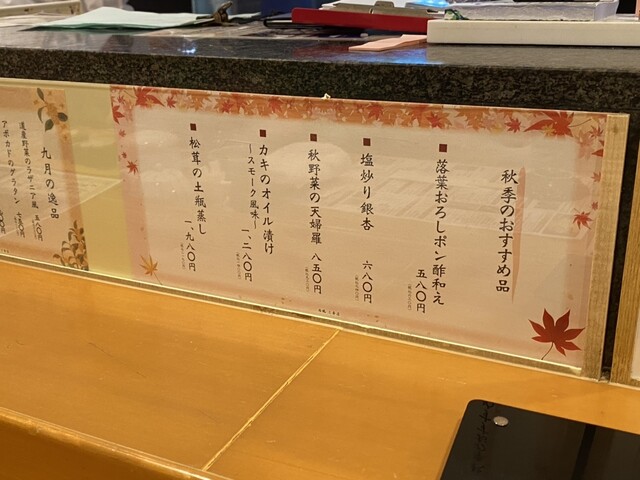 秋季のおすすめ品
■落葉おろしポン酢和え
五八〇円
■塩炒り銀杏 六八〇円
■秋野菜の天婦羅 八五〇円
■カキのオイル漬け
〜スモーク風味〜 一、二八〇円
■松茸の土瓶蒸し
一、九八〇円
九月の逸品
道産野菜のラザニア風
アボカドのグラタン